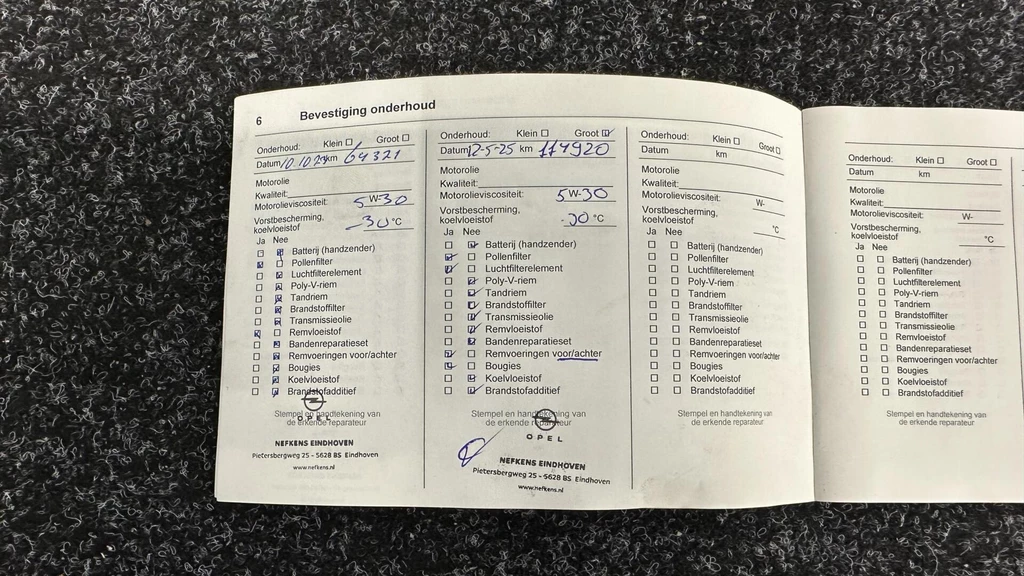 6 Bevestiging onderhoud
Onderhoud: Klein Groot
Datum km 64321
Motorolie
Kwaliteit:
Motorolieviscositeit: 5 W-30
Vorstbescherming,
koelvloeistof -30 °C
Ja Nee
Batterij (handzender)
Pollenfilter
Luchtfilterelement
Poly-V-riem
Tandriem
Brandstoffilter
Transmissieolie
Remvloeistof
Bandenreparatieset
Remvoeringen voor/achter
Bougies
Koelvloeistof
Brandstofadditief
Stempel en handtekening van
de erkende reparateur
OPEL
NEFKENS EINDHOVEN
Pietersbergweg 25 - 5628 BS Eindhoven
www.nefkens.nl
Onderhoud: Klein Groot
Datum 12-5-25 km 114920
Motorolie
Kwaliteit:
Motorolieviscositeit: 5 W-30
Vorstbescherming,
koelvloeistof -30 °C
Ja Nee
Batterij (handzender)
Pollenfilter
Luchtfilterelement
Poly-V-riem
Tandriem
Brandstoffilter
Transmissieolie
Remvloeistof
Bandenreparatieset
Remvoeringen voor/achter
Bougies
Koelvloeistof
Brandstofadditief
Stempel en handtekening van
de erkende reparateur
OPEL
NEFKENS EINDHOVEN
Pietersbergweg 25 - 5628 BS Eindhoven
www.nefkens.nl
Onderhoud: Klein Groot
Datum km
Motorolie
Kwaliteit:
Motorolieviscositeit: W-
Vorstbescherming,
koelvloeistof °C
Ja Nee
Batterij (handzender)
Pollenfilter
Luchtfilterelement
Poly-V-riem
Tandriem
Brandstoffilter
Transmissieolie
Remvloeistof
Bandenreparatieset
Remvoeringen voor/achter
Bougies
Koelvloeistof
Brandstofadditief
Stempel en handtekening van
de erkende reparateur
Onderhoud: Klein Groot
Datum km
Motorolie
Kwaliteit:
Motorolieviscositeit: W-
Vorstbescherming,
koelvloeistof °C
Ja Nee
Batterij (handzender)
Pollenfilter
Luchtfilterelement
Poly-V-riem
Tandriem
Brandstoffilter
Transmissieolie
Remvloeistof
Bandenreparatieset
Remvoeringen voor/achter
Bougies
Koelvloeistof
Brandstofadditief
Stempel en handtekening van
de erkende reparateur